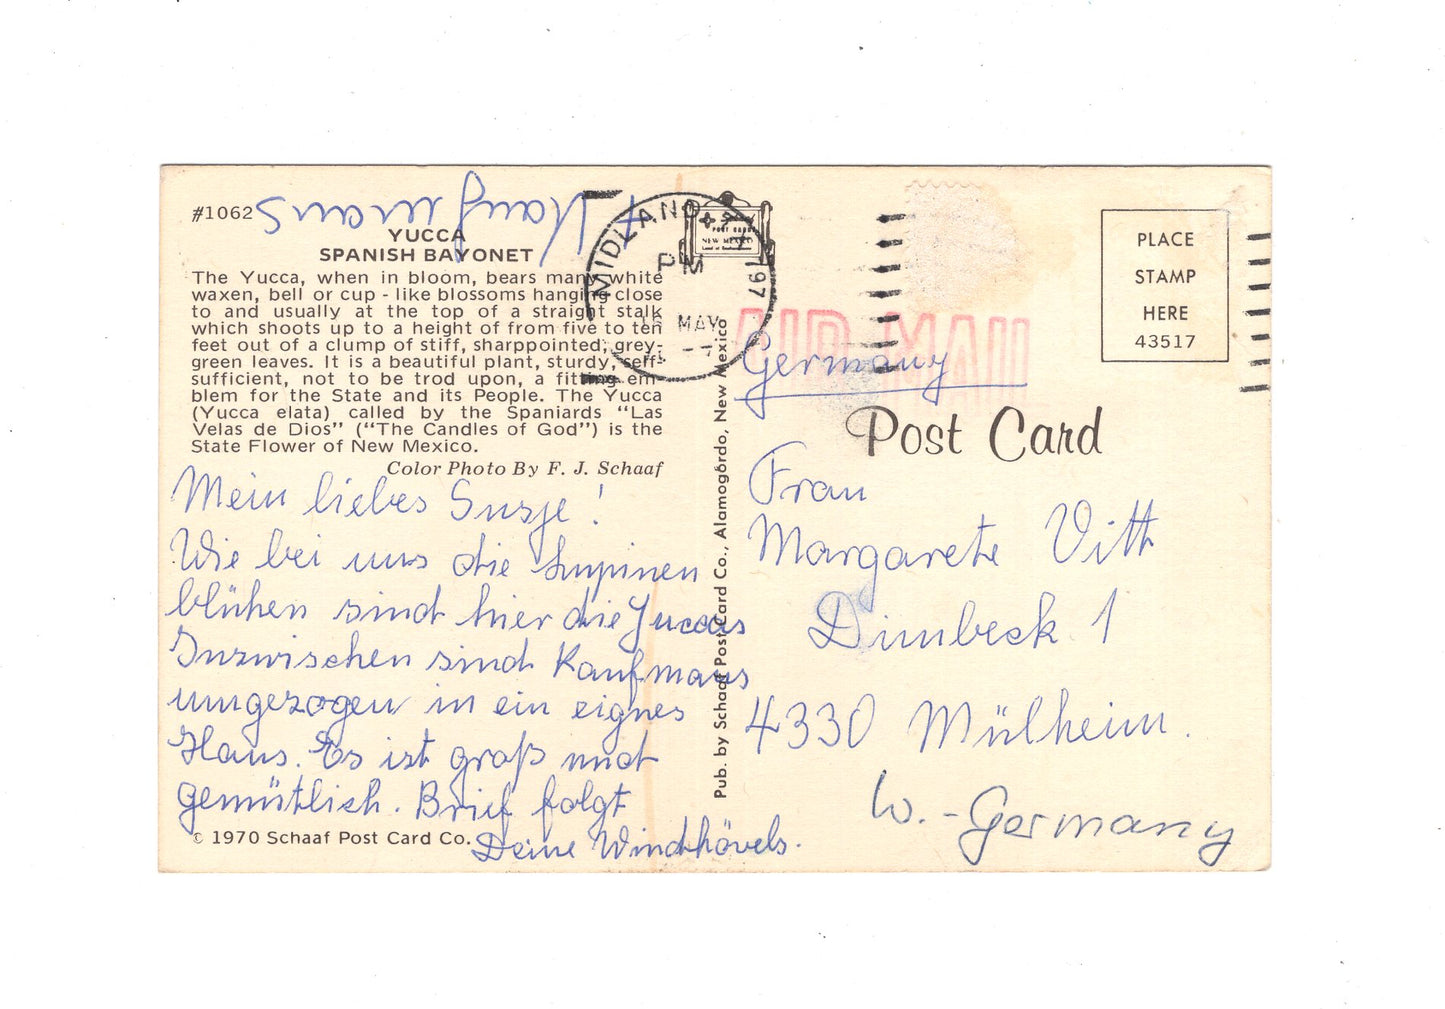 #1062
+ Kaufmans
YUCCA
SPANISH BAYONET
The Yucca, when in bloom, bears many white
waxen, bell or cup - like blossoms hanging close
to and usually at the top of a straight stalk
which shoots up to a height of from five to ten
feet out of a clump of stiff, sharppointed, grey-
green leaves. It is a beautiful plant, sturdy, self-
sufficient, not to be trod upon, a fitting em-
blem for the State and its People. The Yucca
(Yucca elata) called by the Spaniards “Las
Velas de Dios” (“The Candles of God”) is the
State Flower of New Mexico.
Color Photo By F. J. Schaaf
Mein liebes Susje!
Wie bei uns die Lupinen
blühen sind hier die Yuccas
Inzwischen sind Kaufmans
umgezogen in ein eignes
Haus. Es ist groß und
gemütlich. Brief folgt
Deine Windhövels.
© 1970 Schaaf Post Card Co.
Pub. by Schaaf Post Card Co., Alamogordo, New Mexico
MIDLAND, TX 797
PM
16 MAY
POST CARDS
NEW MEXICO
AIR MAIL
PLACE
STAMP
HERE
43517
Germany
Post Card
Frau
Margarete Vitt
Dimbeck 1
4330 Mülheim.
W.-Germany